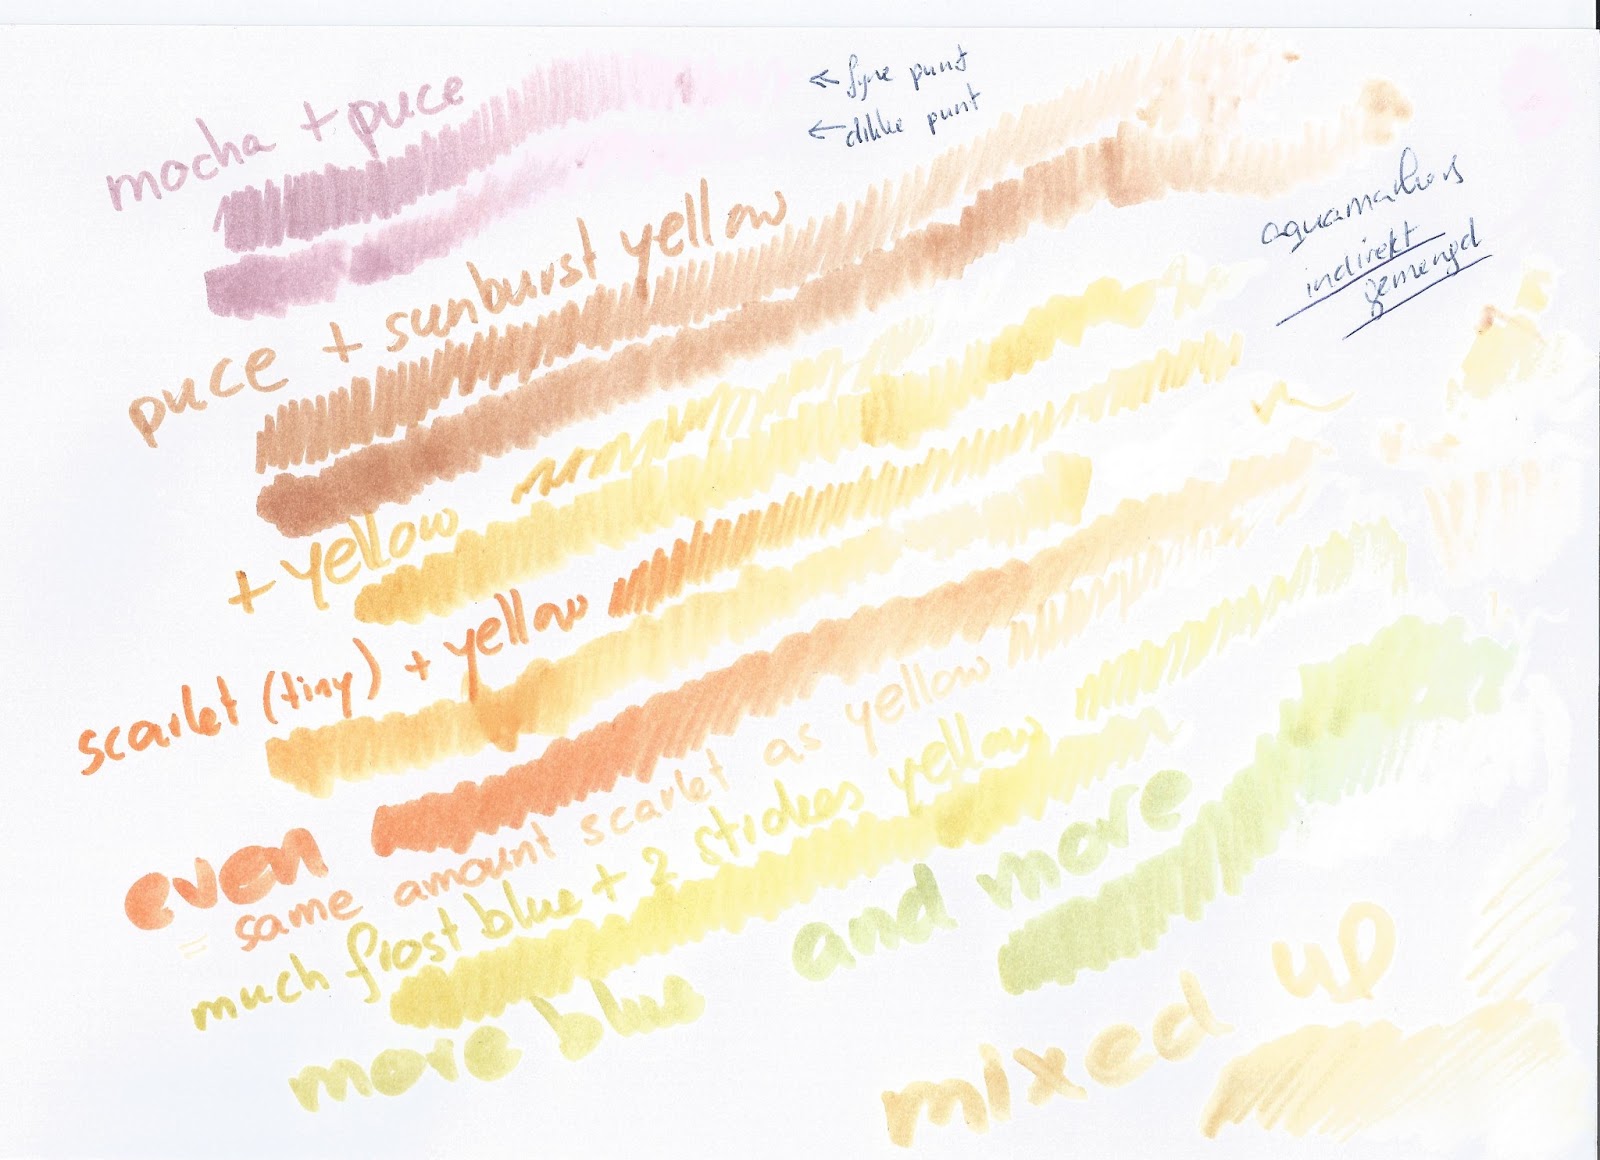 mocha + puce
← fyne punt
← dikke punt
puce + sunburst yellow
aquamarkers
indirekt
gemengd
+ yellow
scarlet (tiny) + yellow
even
= same amount scarlet as yellow
much frost blue + 2 strokes yellow
more blue
and more
mixed up